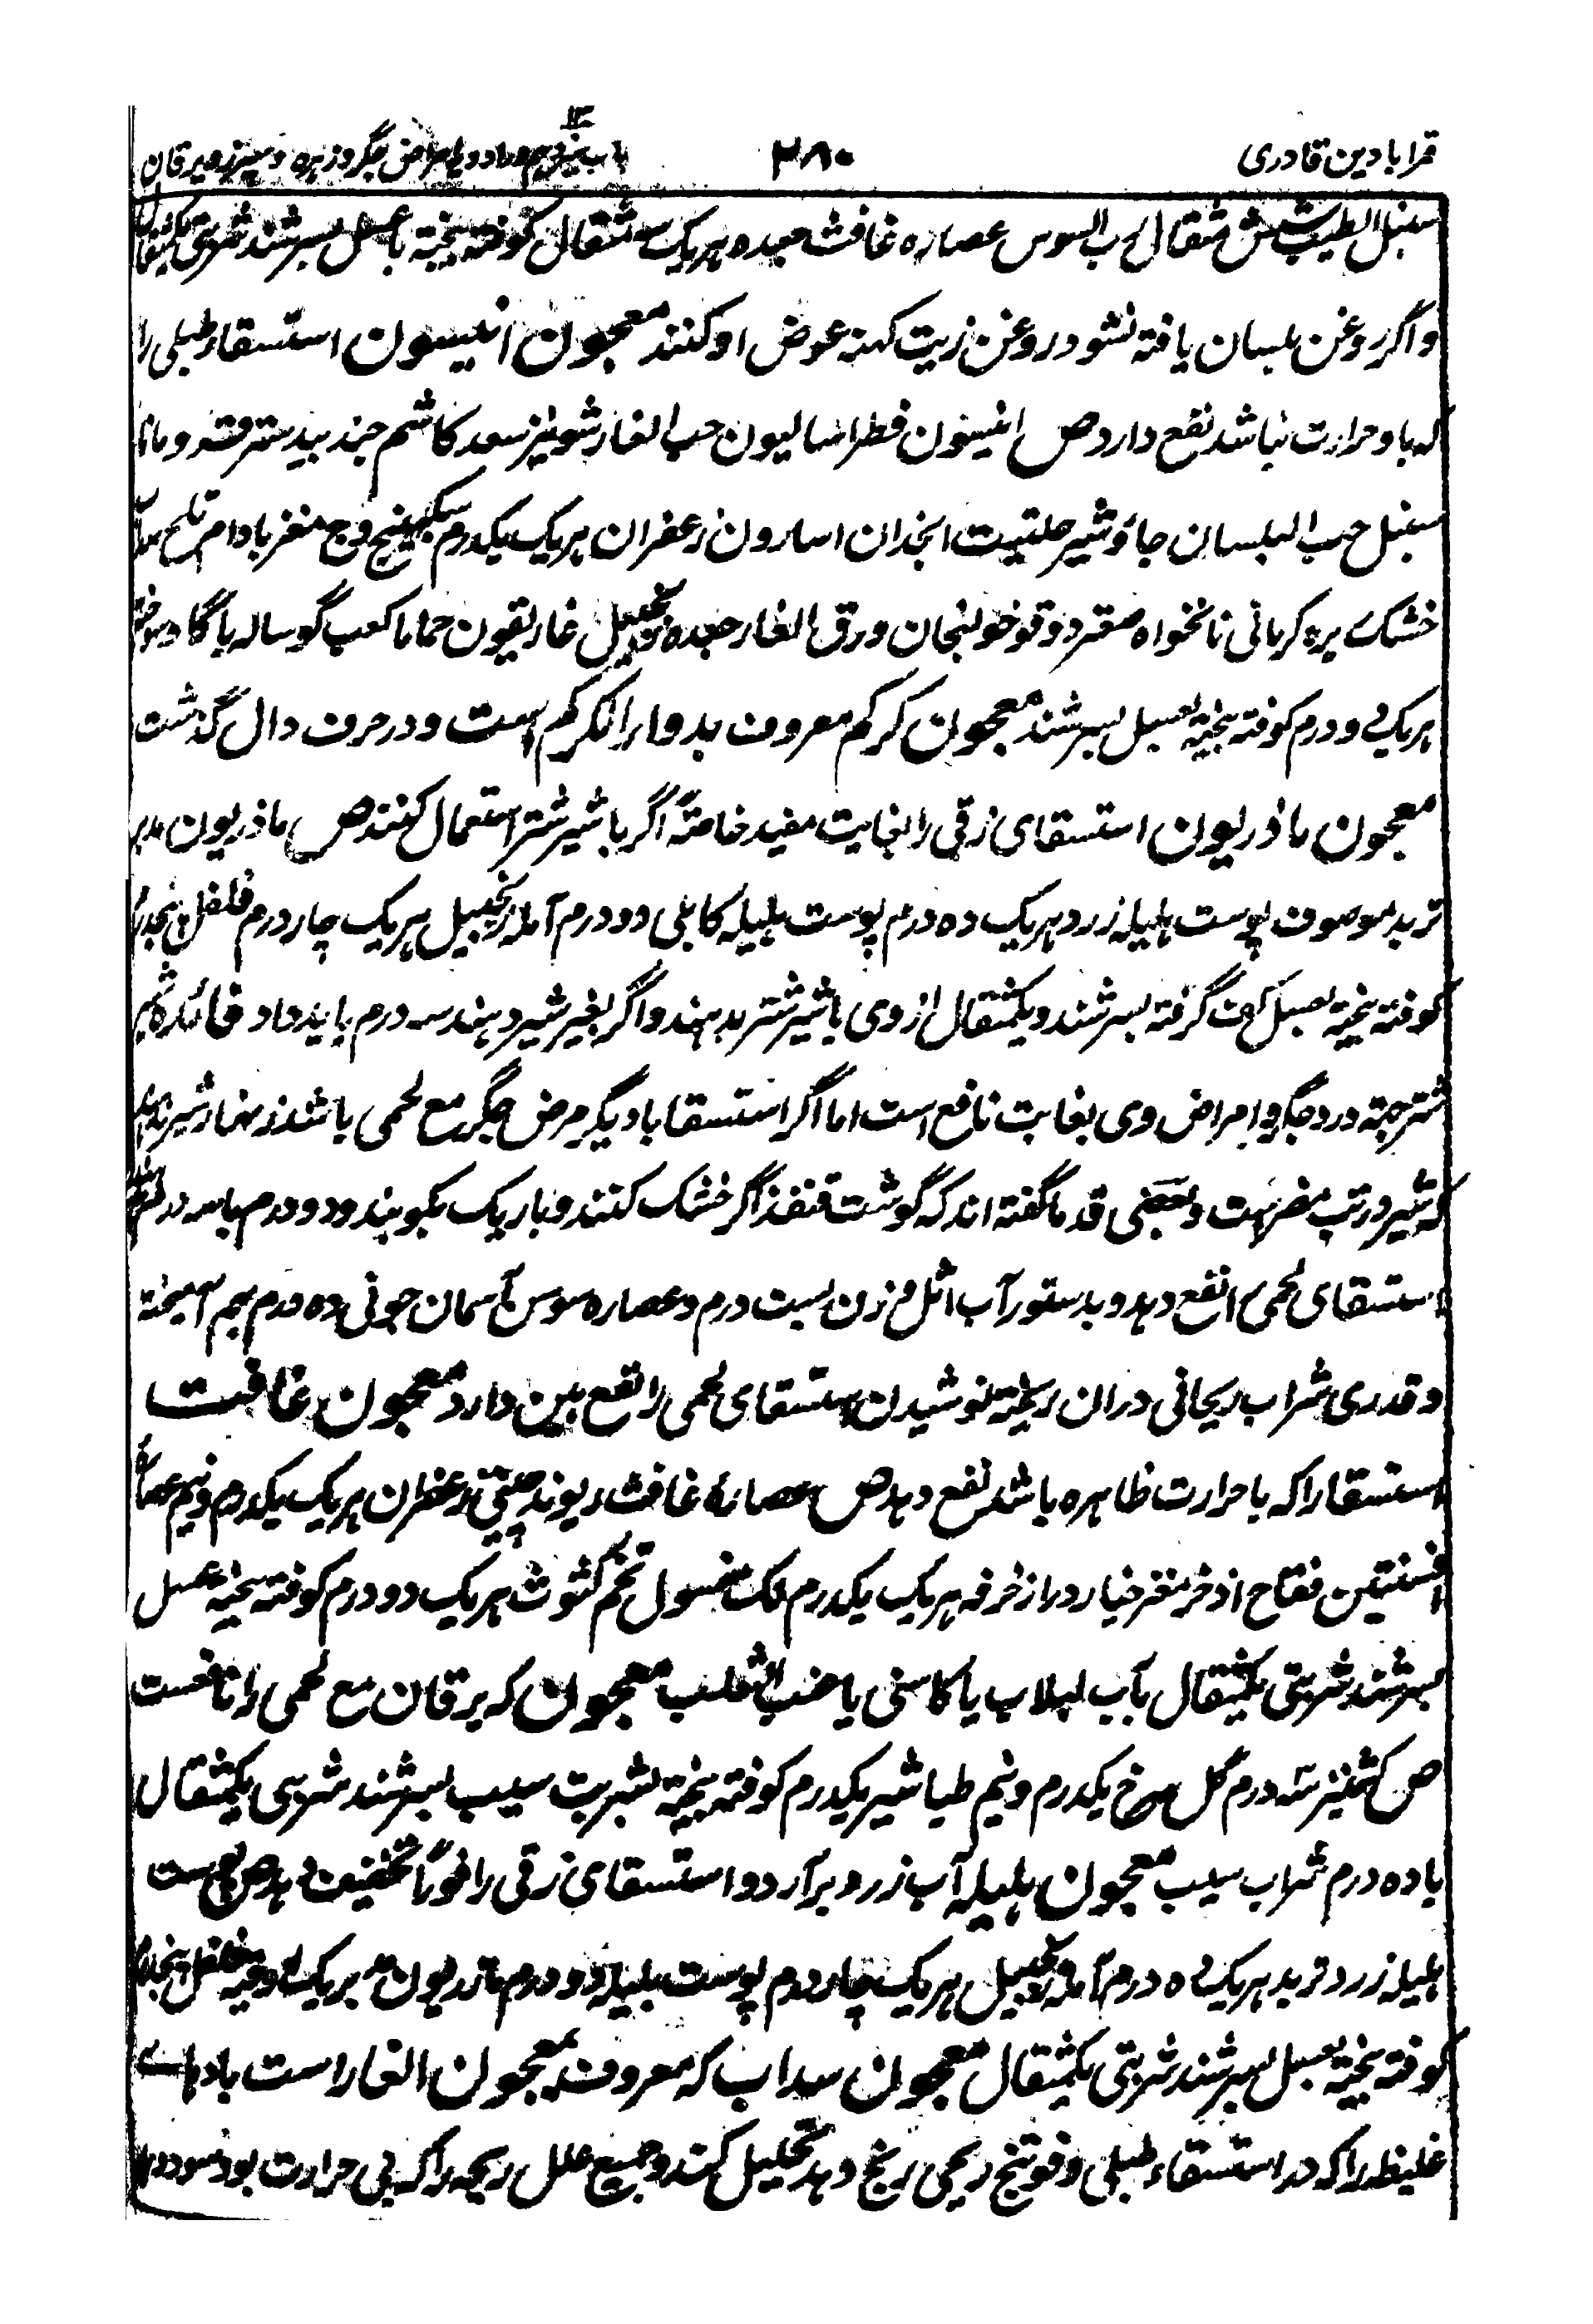 قرابادین قادری
۲۸۰
باب سیزدهم در ادویه امراض جگر و زهره و سپرز و یرقان
سنبل الطیب شش مثقال رب السوس عصاره غافث جعده هریک سه مثقال کوفته بیخته با عسل بسرشند شربتی یکمثقال
و اگر روغن بلسان یافته نشود روغن زیت کهنه عوض او کنند معجون انیسون استسقاء طبلی را
که با و حرارت نباشد نفع دارد ص انیسون فطراسالیون حب الغار شونیز سعد کاشم جندبیدستر قسط و مانا
سنبل حب البلسان جاوشیر حلتیت انجدان اسارون زعفران هریک یکدرم سکبینج وج مغز بادام تلخ
خشک زیره کرمانی نانخواه صعتر دوقو خولنجان ورق الغار جعده زنجبیل غاریقون حماما کعب گوساله یا گاو سوخته
هریک دو درم کوفته بیخته بعسل بسرشند معجون کرکم معروف بدواء الکرکم است و در حرف دال گذشت
معجون ماذریون استسقای زقی را بغایت مفید خاصتہ اگر با شیر شتر استعمال کنند ص ماذریون مدبر
تربد موصوف پوست هلیله زرد هریک ده درم پوست بلیله کابلی دو درم آمله زنجبیل هریک چار درم فلفل پنجدرم
کوفته بیخته بعسل کف گرفته بسرشند و یکمثقال از وی با شیر شتر بدهند و اگر بغیر شیر دهند سه درم باید داد فائده شیر
شتر جهته درد جگر و امراض وی بغایت نافع است اما اگر استسقا با دیگر مرض جگر مع لحمی باشد زنهار شیر ندهند
که شیر در تب مضر است و بعضی قدما گفته اند که گوشت قنفذ اگر خشک کنند و باریک بکوبند و دو درم با سه درم
استسقای لحمی را نفع دهد و بدستور آب اثل مزن بست درم و عصاره سوس آسمان جونی ده درم بهم آمیخته
و قدری شراب ریحانی دران ریخته نوشیدن استسقای لحمی را نفع بین دارد معجون غافت
استسقا را که با حرارت ظاهره باشد نفع دهد ص عصارهٔ غافث ریوند چینی زعفران هریک یکدرم و نیم عصاره
افسنتین فقاح اذخر مغز خیار دراز خرفه هریک یکدرم لک مغسول تخم کثوث هریک دو درم کوفته بیخته عسل
بسرشند شربتی یکمثقال بآب لبلاب یا کاسنی یا عنب الثعلب معجون که یرقان مع لحمی را نافعست
ص کشنیز سه درم گل سرخ یکدرم و نیم طباشیر یکدرم کوفته بیخته بشربت سیب بسرشند شربتی یکمثقال
با ده درم شراب سیب معجون هلیله آب زرد برآرد و استسقای زقی را فوراً تخفیف دهد ص پوست
هلیله زرد تربد هریک ده درم آمله زنجبیل هریک چار درم پوست بلیله دو درم ماذریون مدبر یک اوقیه فلفل پنجدرم
کوفته بیخته بعسل بسرشند شربتی یکمثقال معجون سداب که معروف بمعجون الغار است بادهای
غلیظ را که در استسقاء طبلی و قولنج ریحی رنج دهد تحلیل کند و جمیع علل ریحیه را که بی حرارت بود سود دهد